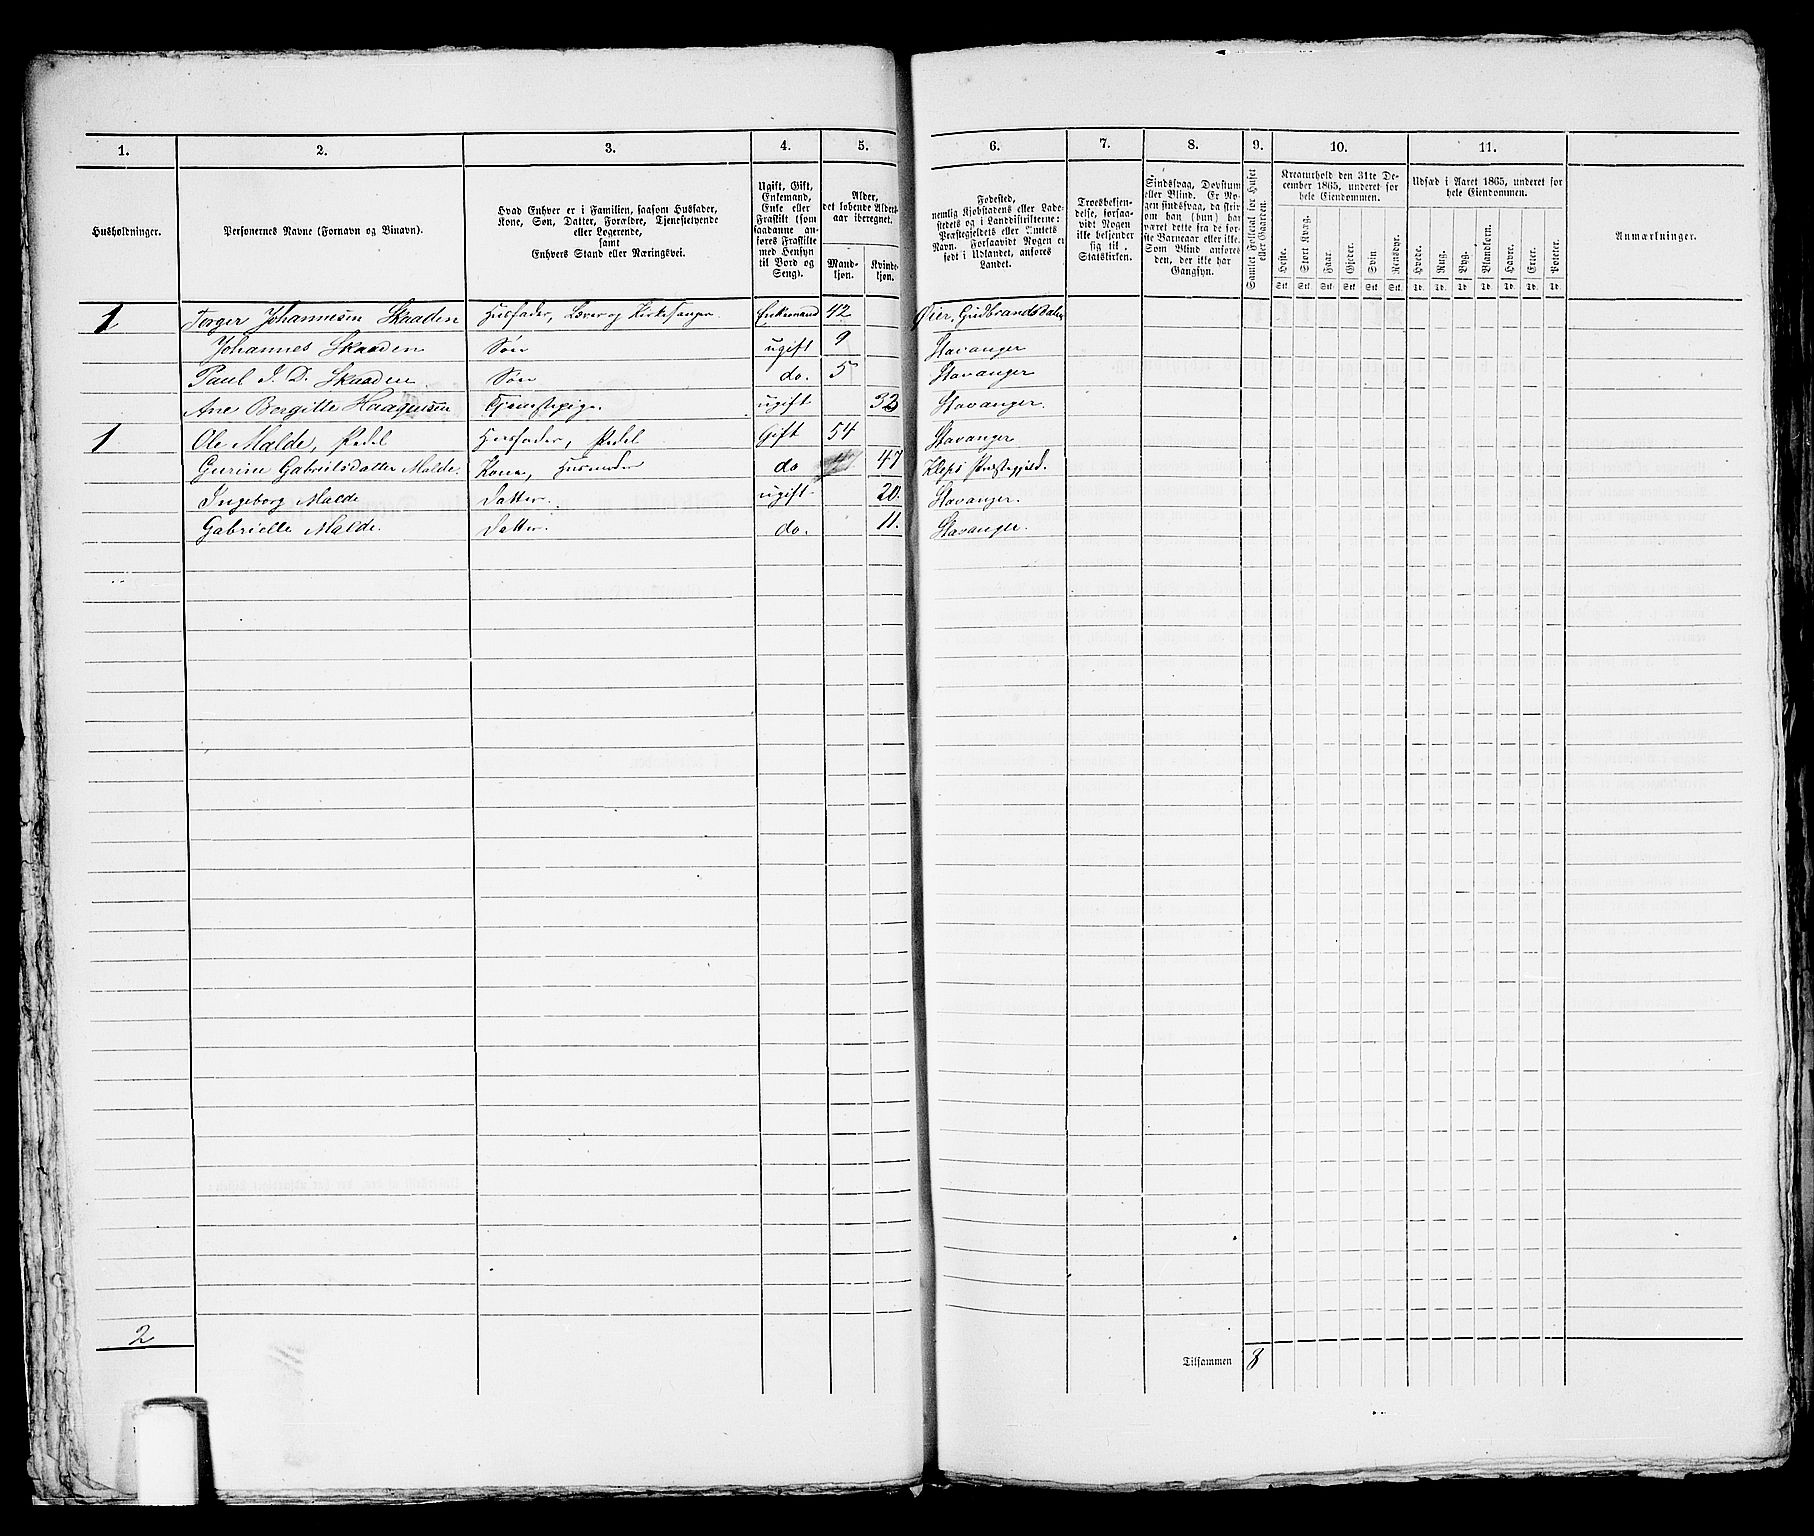 1. 2. 3. 4. 5. 6. 7. 8. 9. 10. 11.
Husholdninger.
Personernes Navne (Fornavn og Binavn).
Hvad Enhver er i Familien, saasom Husfader,
Kone, Søn, Datter, Forældre, Tjenestetyende
eller Logerende,
samt
Enhvers Stand eller Næringsvei.
Ugift, Gift,
Enkemand,
Enke eller
Fraskilt (som
saadanne an-
føres Fraskilte
med Hensyn
til Bord og
Seng).
Alder,
det løbende Alders-
aar iberegnet.
Mand-
kjøn.
Kvinde-
kjøn.
Fødested,
nemlig Kjøbstadens eller Lade-
stedets og i Landdistrikterne:
Præstegjeldets eller Amtets
Navn. Forsaavidt Nogen er
født i Udlandet, anføres
Landet.
Troesbekjen-
delse, forsaa-
vidt Nogen
ikke bekjender
sig til
Statskirken.
Sindssvag, Døvstum
eller Blind. Er No-
gen sindssvag, da skri-
ves om han (hun) har
været dette fra de før-
ste Barneaar eller ikke.
Som Blind anføres
den, der ikke har
Gangsyn.
Samlet Folketal for Huset
eller Gaarden.
Kreaturhold den 31te De-
cember 1865, underet for
hele Eiendommen.
Heste. Stort Kvæg. Faar. Gjeder. Svin Rensdyr.
Stk. Stk. Stk. Stk. Stk. Stk.
Udsæd i Aaret 1865, underet for
hele Eiendommen.
Hvede. Rug. Byg. Blandkorn. Havre. Erter. Poteter.
Td. Td. Td. Td. Td. Td. Td.
Anmærkninger.
1 Torger Johannesen Skaaden Husfader, Lærer og Kirkesanger Enkemand 42 Øier, Gudbrandsdalen
Johannes Skaaden Søn ugift 9 Stavanger
Paul J. D. Skaaden Søn do. 5 Stavanger
Ane Bergitte Haagensen Tjenestepige ugift 32 Stavanger.
1 Ole Malde, Pedel Husfader, Pedel Gift 54 Stavanger
Gurine Gabrielsdatter Malde. Kone, Husmoder do 47 Kleps Præstegjeld.
Ingeborg Malde Datter. ugift 20. Stavanger.
Gabrielle Malde. Datter. do. 11. Stavanger.
2
Tilsammen 8